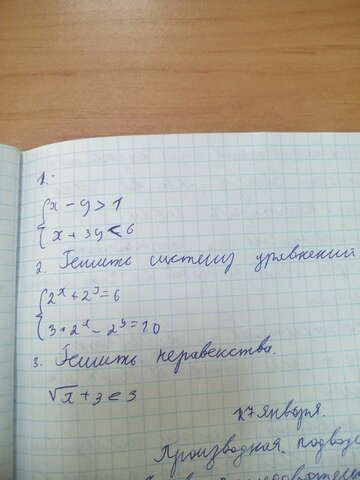 1.
{x - y > 1
{x + 3y < 6
2. Решить систему уравнений
{2^x + 2^y = 6
{3 + 2^x - 2^y = 10
3. Решить неравенства.
√x + 3 ∈ 3
17 января.
Производная,